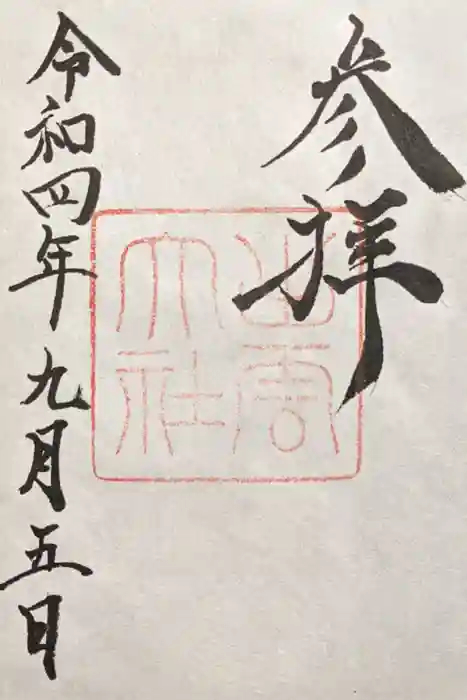 参拝
出雲
大社
令和四年九月五日